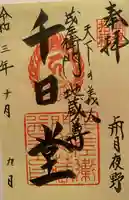 奉拝
天下の義人
茂左衛門地蔵尊
千日堂
月夜野
令和三年十月九日